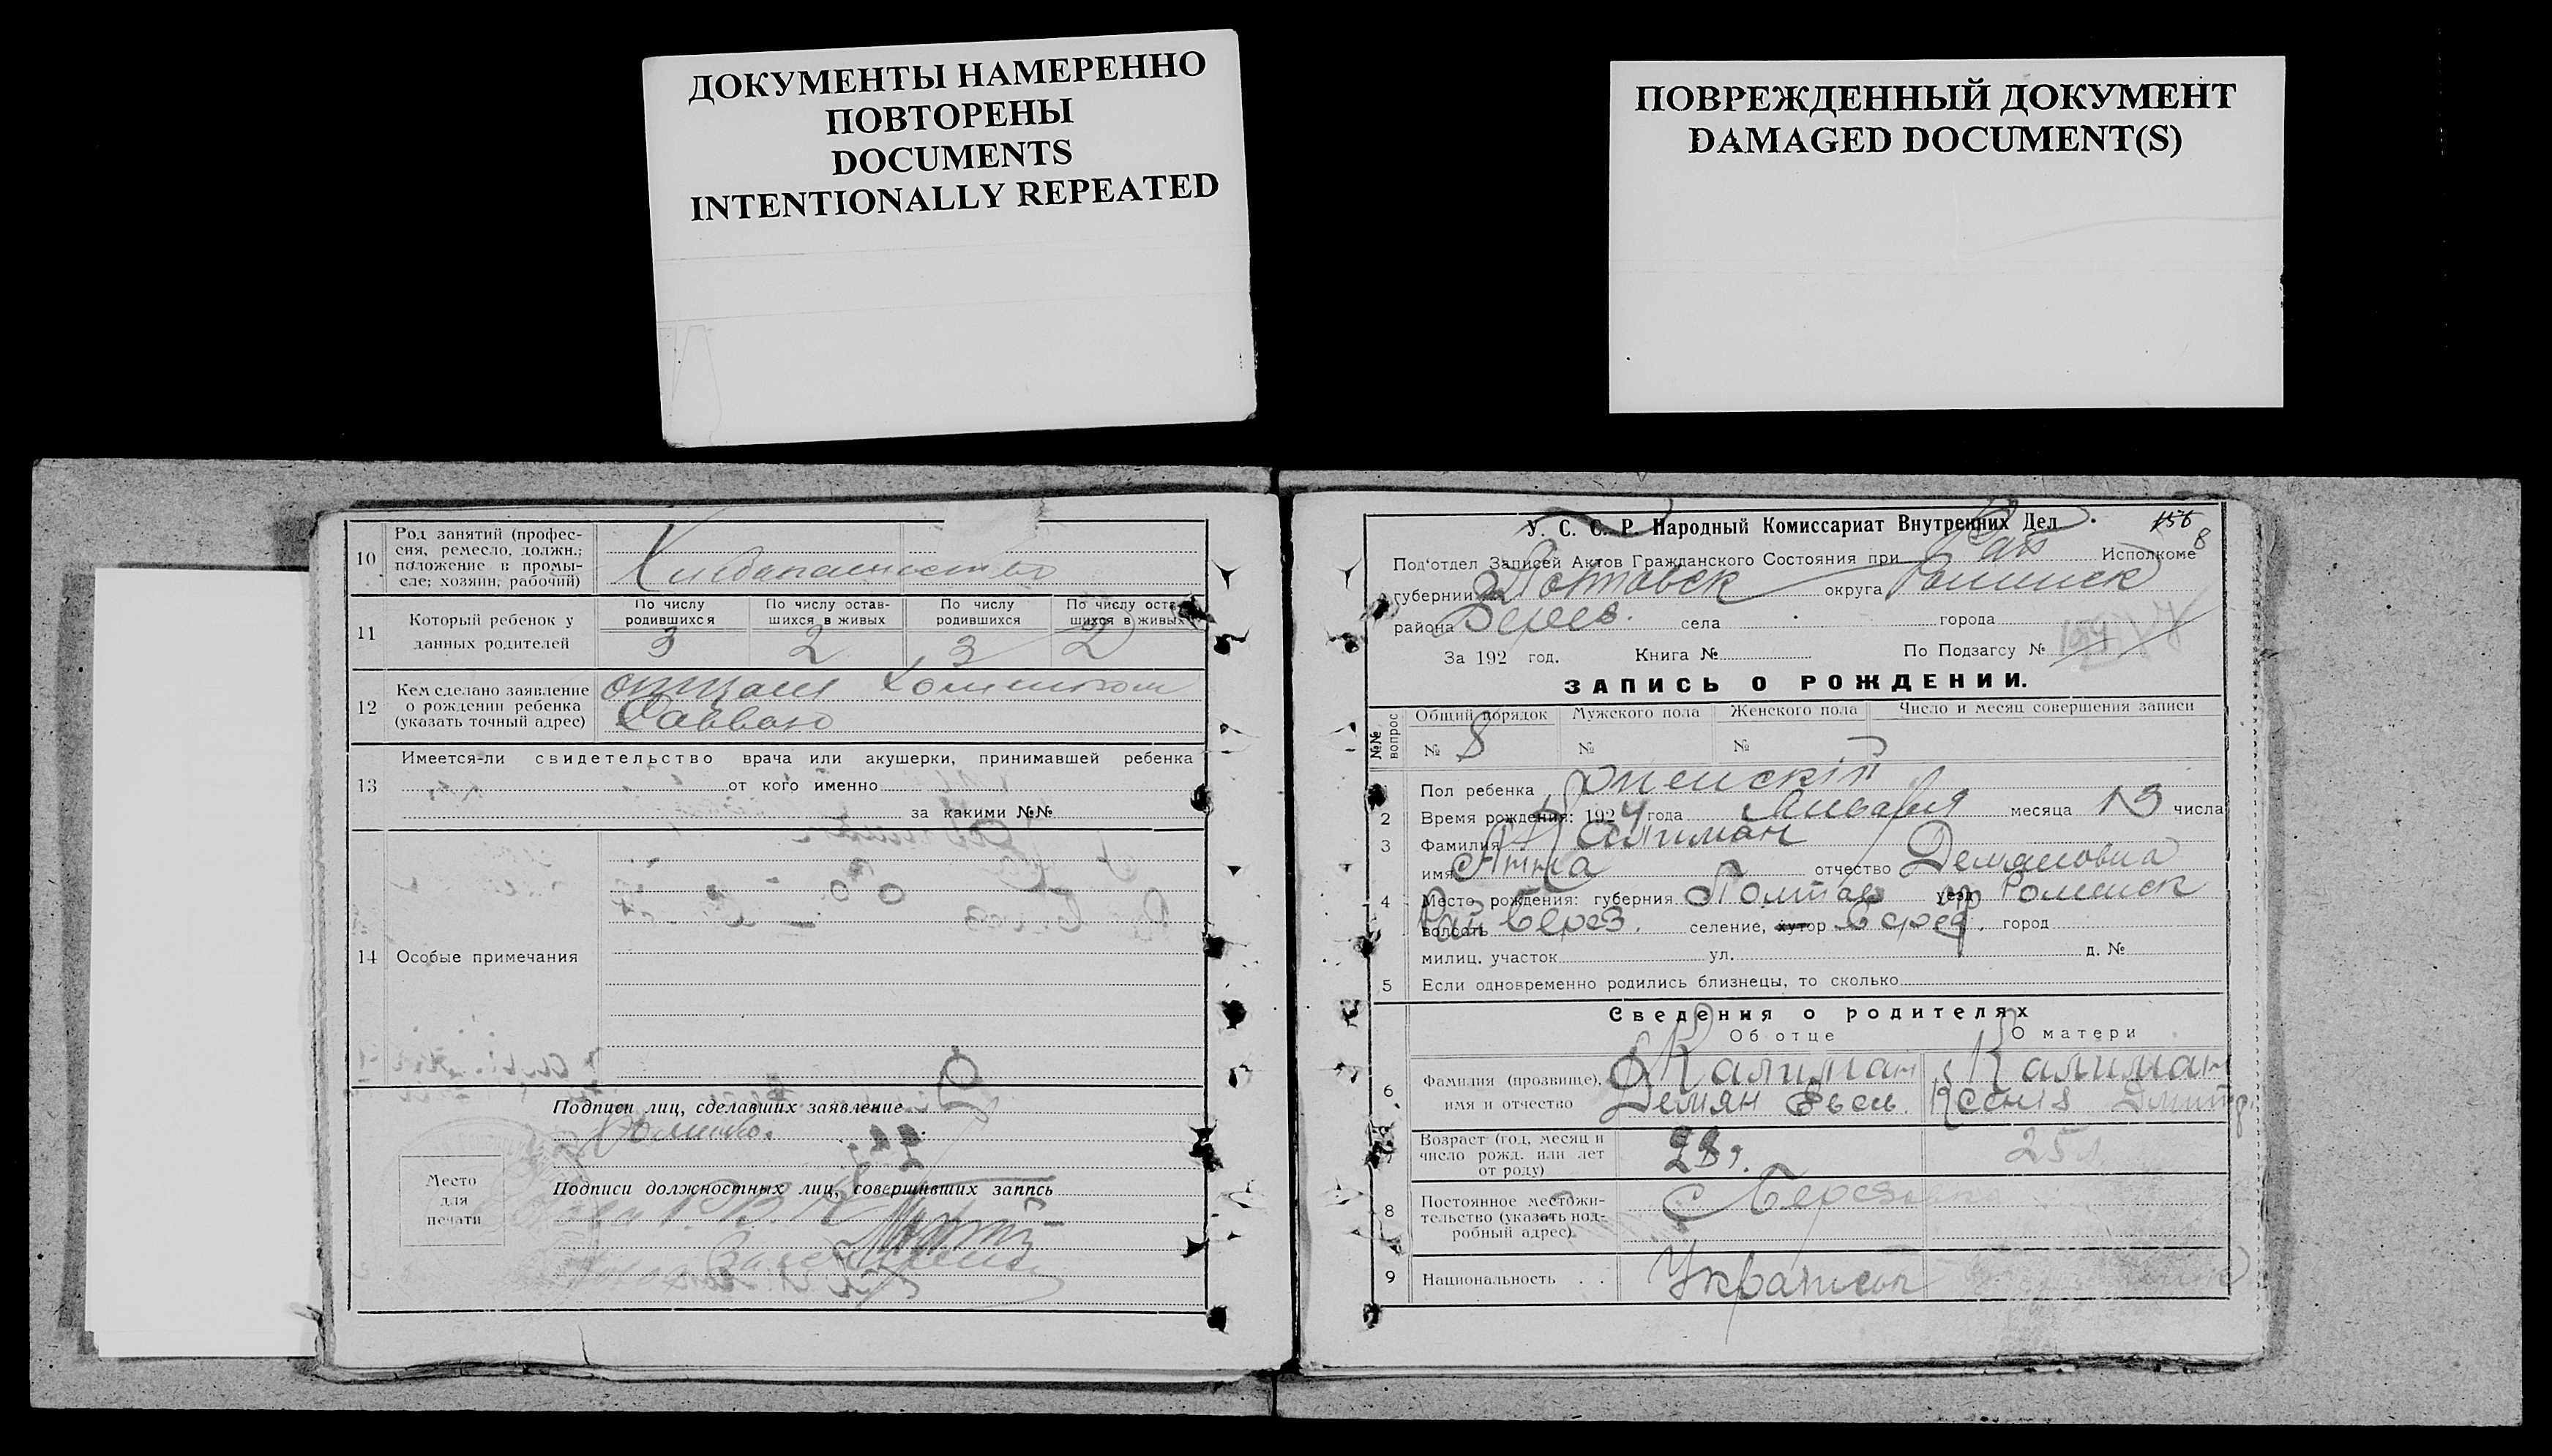 ДОКУМЕНТЫ НАМЕРЕННО
ПОВТОРЕНЫ
DOCUMENTS
INTENTIONALLY REPEATED
ПОВРЕЖДЕННЫЙ ДОКУМЕНТ
DAMAGED DOCUMENT(S)
10 Род занятий (профес-
сия, ремесло, должн.;
положение в промы-
сле; хозяин, рабочий)
11 Который ребенок у
данных родителей
По числу родившихся 3
По числу остав-шихся в живых 2
По числу родившихся 3
По числу оста шихся в живых 2
12 Кем сделано заявление
о рождении ребенка
(указать точный адрес)
отцом
Саввою
13 Имеется-ли свидетельство врача или акушерки, принимавшей ребенка
от кого именно
за какими №№
14 Особые примечания
Подписи лиц, сделавших заявление
Подписи должностных лиц, совершивших запись
Место
для
печати
У. С. С. Р. Народный Комиссариат Внутренних Дел
156
8
Под'отдел Записей Актов Гражданского Состояния при Рай Исполкоме
губернии Полтавск округа Роменск
района Берез. села города
За 192 год. Книга № По Подзагсу №
ЗАПИСЬ О РОЖДЕНИИ.
№№ вопрос
Общий порядок Мужского пола Женского пола Число и месяц совершения записи
№ 8 № №
Пол ребенка Женский
2 Время рождения: 1924 года Января месяца 13 числа
3 Фамилия Калиман
имя Анна отчество Демяновна
4 Место рождения: губерния Полтав уезд окр Роменск
волость Рай Берез. селение, хутор Берез. город
милиц. участок ул. д. №
5 Если одновременно родились близнецы, то сколько
Сведения о родителях
Об отце О матери
6 Фамилия (прозвище),
имя и отчество
Калиман Калиман
Демян Евсев. Ксения Дмитр.
7 Возраст (год, месяц и
число рожд. или лет
от роду)
28 г. 25 л.
8 Постоянное местожи-
тельство (указать под-
робный адрес)
С Березов
9 Национальность . . Украинец